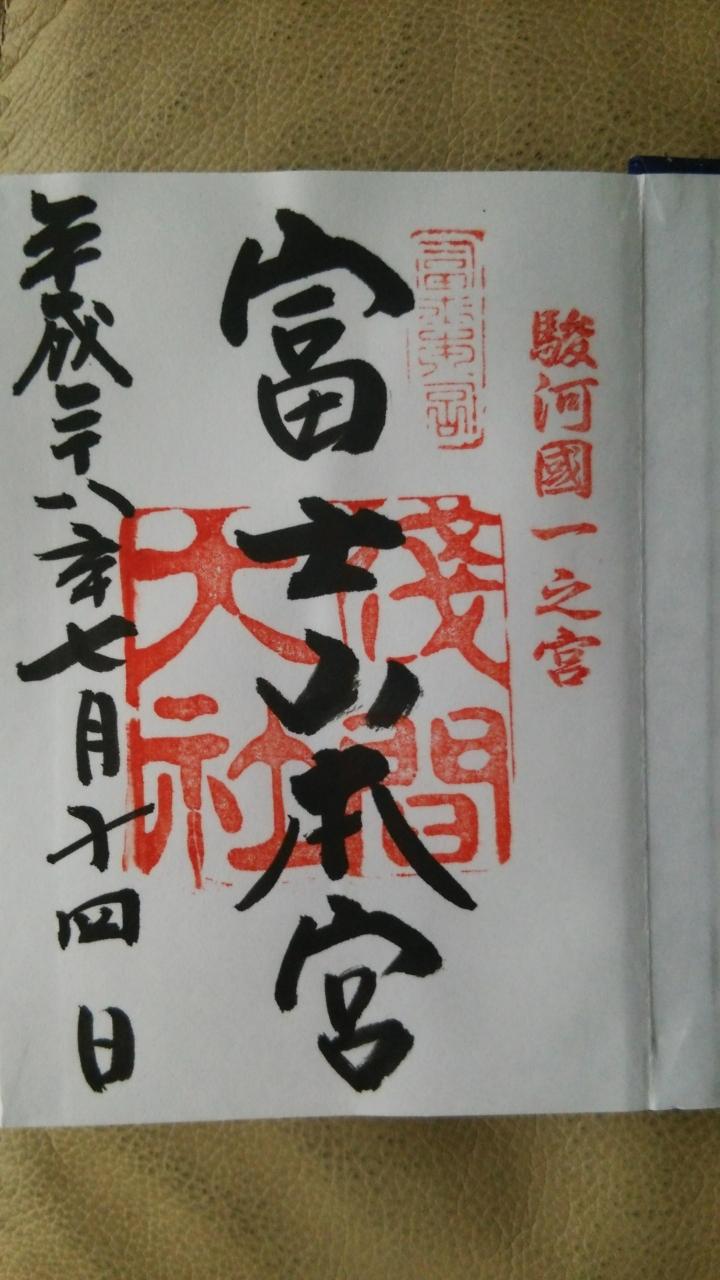 駿河國一之宮
富士山本宮
淺間
大社
平成二十八年七月十四日